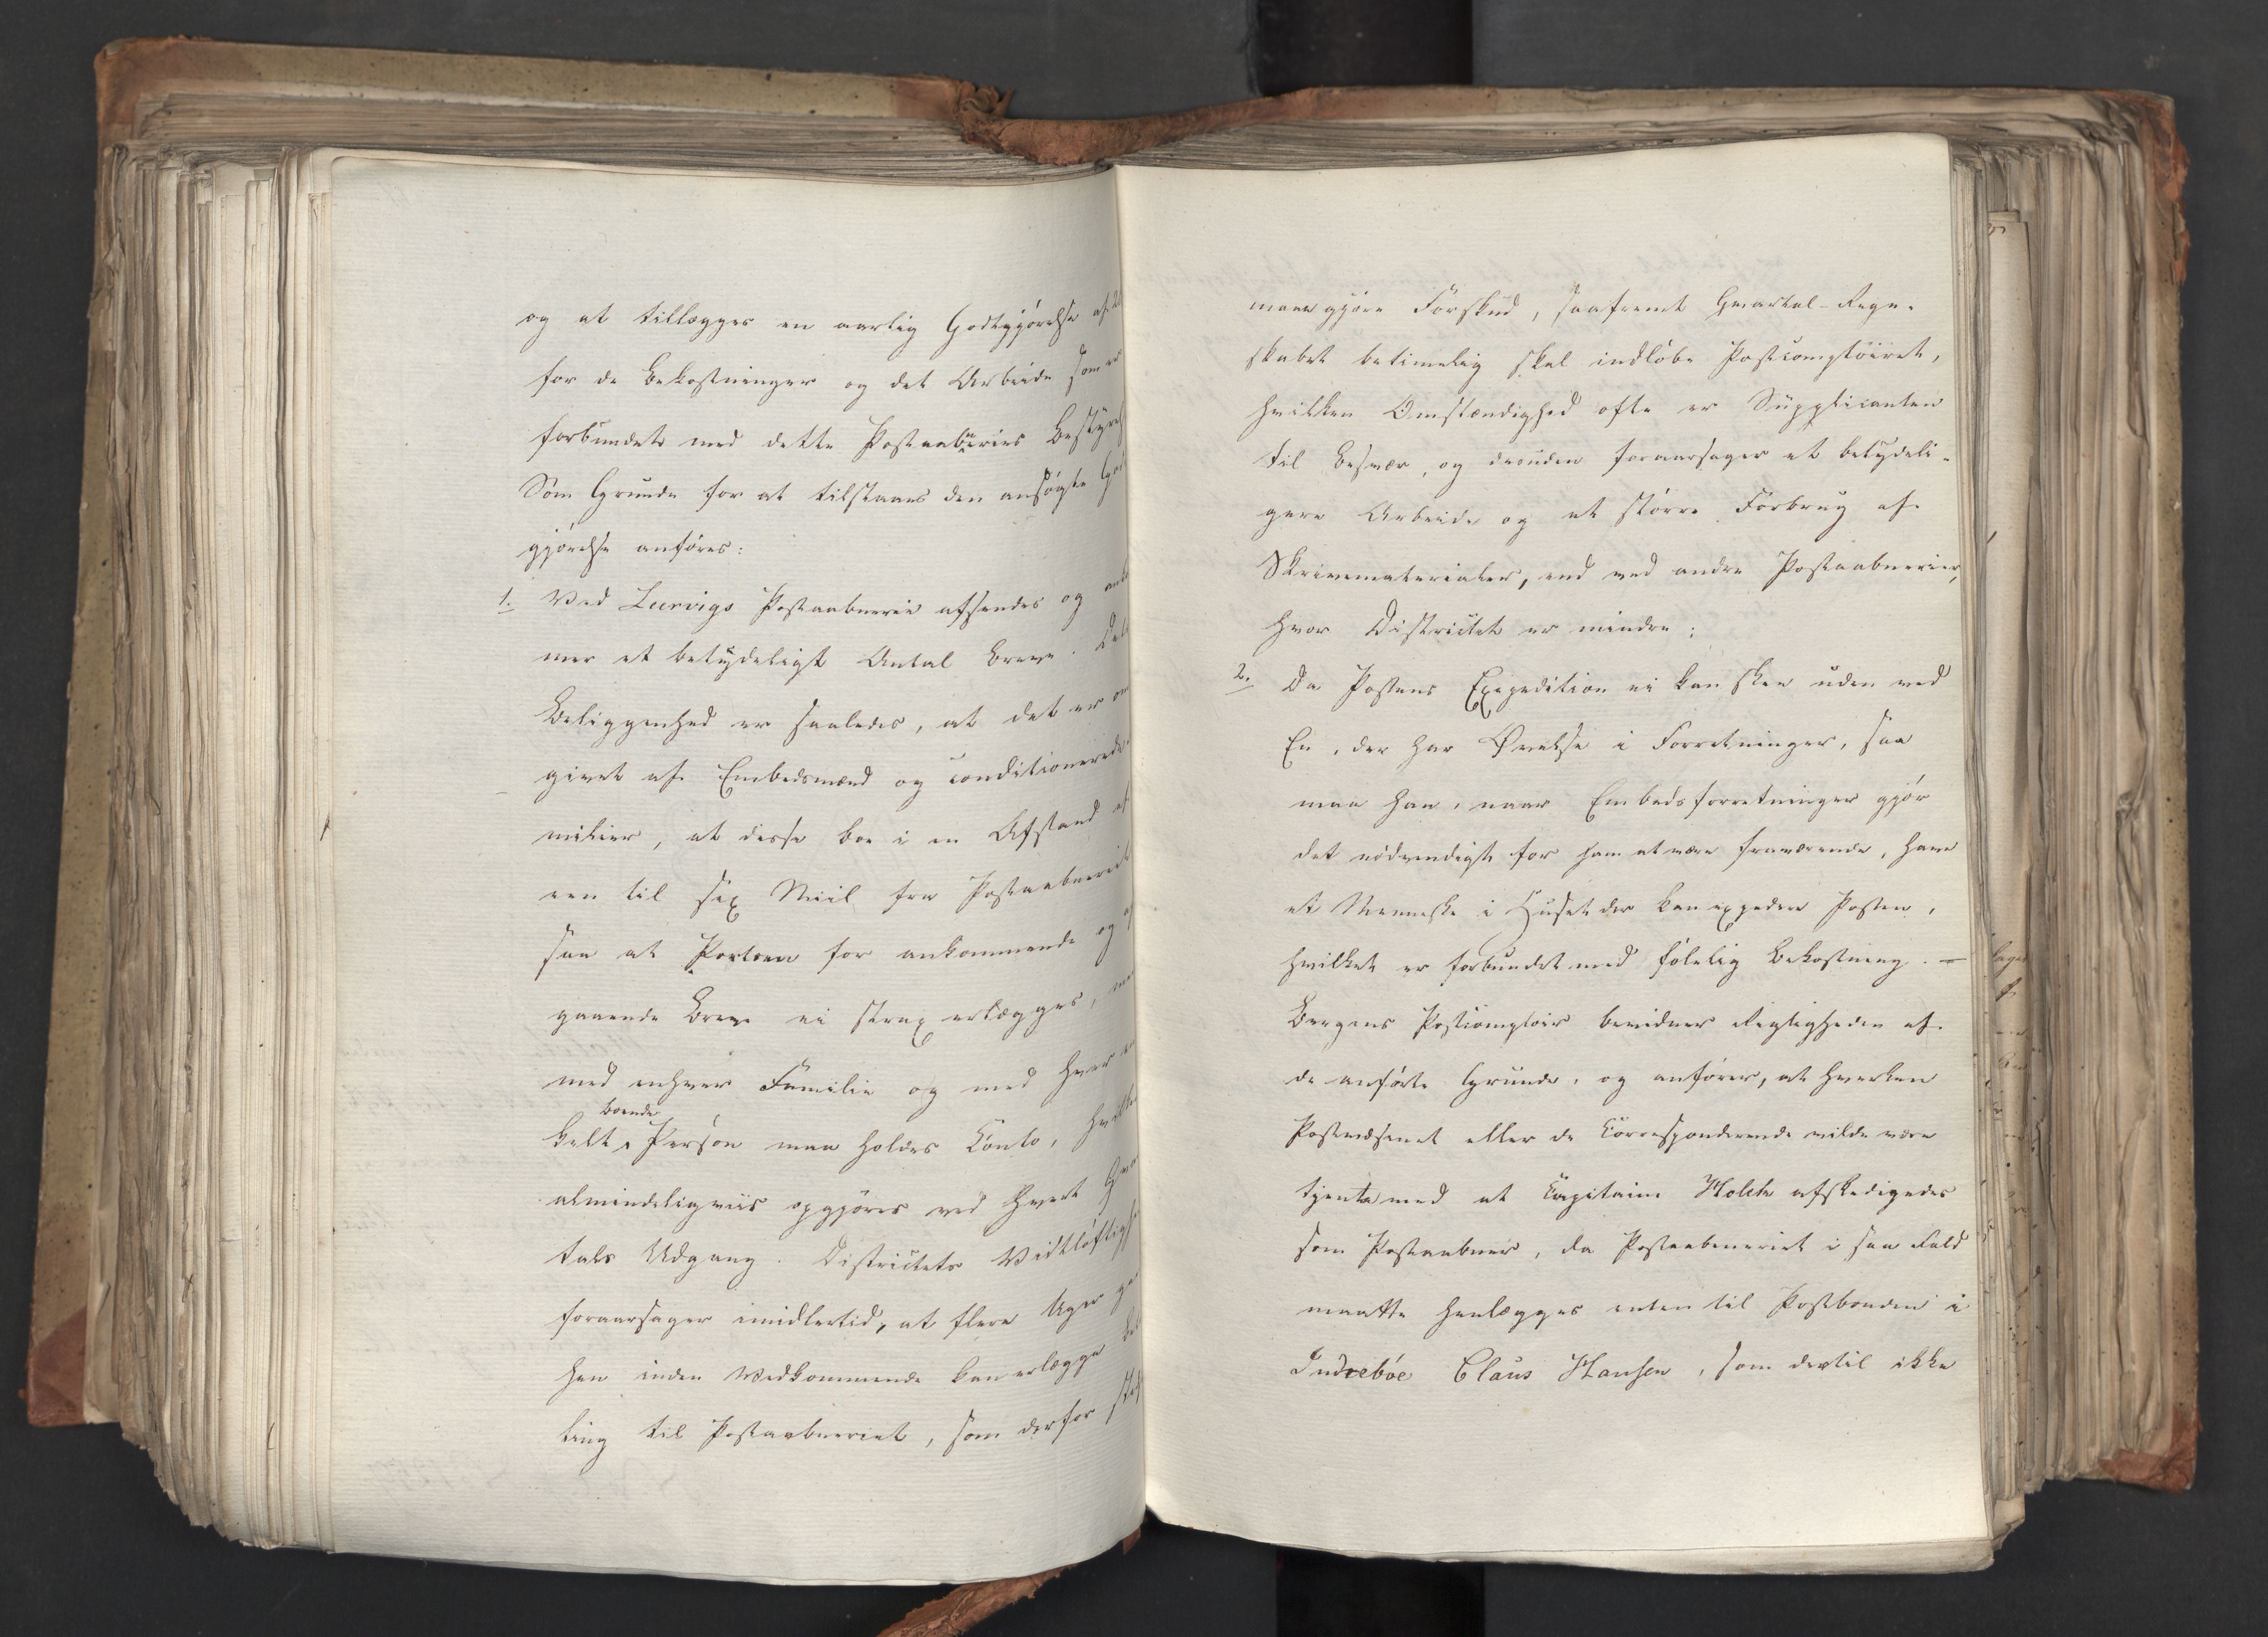 og at tillægges en aarlig Godtgjørelse af
for de Bekostninger og det Arbeide som er
forbundet med dette Postaabneries Bestyrel
Som Grunde for at tilstaaes den ansøgte God
gjørelse anføres:
1. Ved Leervigs Postaabnerie afsendes og ank
mer et betydeligt Antal Breve. Dets
Beliggenhed er saaledes, at det er om
givet af Embedsmænd og conditionerede
milier, at disse boe i en Afstand af
een til sex Miil fra Postaabneriet
saa at Portoen for ankommende og af
gaaende Breve ei strax erlægges, men
med enhver Familie og med hver en
boende
kelt Person maa holdes Conto, hvilke
almindeligviis opgjøres ved hvert Qvar
tals Udgang. Districtets Vidtløftighe
foraarsager imidlertid, at flere Uger gaa
hen inden Vedkommende kan erlægge Beta
ling til Postaabneriet, som derfor sted
maae gjøre Forskud, saafremt Qvartal-Regn-
skabet betimelig skal indløbe Postcomptoiret,
hvilken Omstændighed ofte er Supplicanten
til Besvær, og desuden foraarsager et betydeli-
gere Arbeide og et større Forbrug af
Skrivematerialer, end ved andre Postaabnerier,
hvor Districtet er mindre;
2. Da Postens Expedition ei kan skee uden ved
En, der har Øvelse i Forretninger, saa
maa han, naar Embedsforretninger gjør
det nødvendigt for ham at være fraværende, have
et Menneske i Huset der kan expedere Posten,
hvilket er forbundet med følelig Bekostning. –
Bergens Postcomptoir bevidner Rigtigheden af
de anførte Grunde, og anfører, at hverken
Postvæsenet eller de Corresponderende vilde være
tjente med at Capitaine Holck afskedigedes
som Postaabner, da Postaabneriet i saa Fald
maatte henlægges enten til Postbonden i
Indrebøe Claus Hansen, som dertil ikke